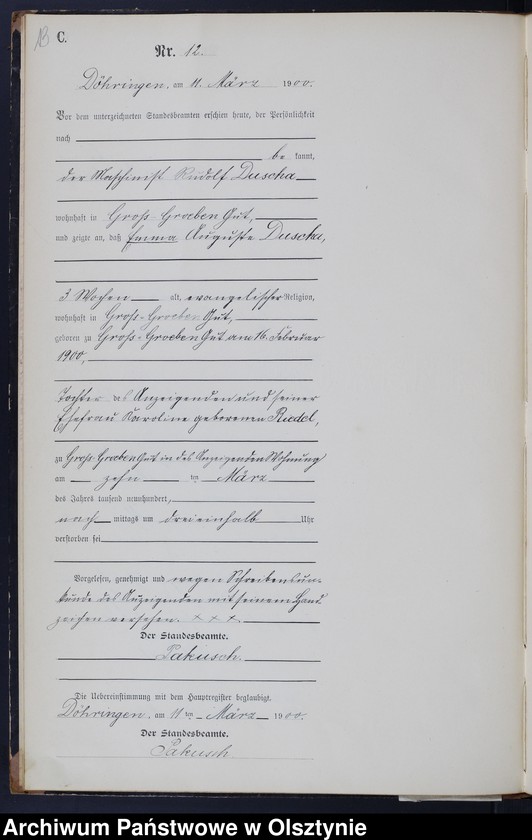 13
C.
Nr. 12.
Döhringen, am 11. März 1900.
Vor dem unterzeichneten Standesbeamten erschien heute, der Persönlichkeit
nach
be kannt,
der Maschinist Rudolf Duscha
wohnhaft in Groß-Groeben Gut,
und zeigte an, daß Emma Auguste Duscha,
3 Wochen alt, evangelischer Religion,
wohnhaft in Groß-Groeben Gut,
geboren zu Groß-Groeben Gut am 16. Februar
1900,
Tochter des Anzeigenden und seiner
Ehefrau Karoline geborenen Riedel,
zu Groß-Groeben Gut in des Anzeigenden Wohnung
am zehn ten März
des Jahres tausend neunhundert,
nach mittags um dreieinhalb Uhr
verstorben sei
Vorgelesen, genehmigt und wegen Schreibensun-
kunde des Anzeigenden mit seinem Hand
zeichen versehen. + + +.
Der Standesbeamte.
Pakusch.
Die Uebereinstimmung mit dem Hauptregister beglaubigt.
Döhringen, am 11 ten März 1900.
Der Standesbeamte.
Pakusch
Archiwum Państwowe w Olsztynie